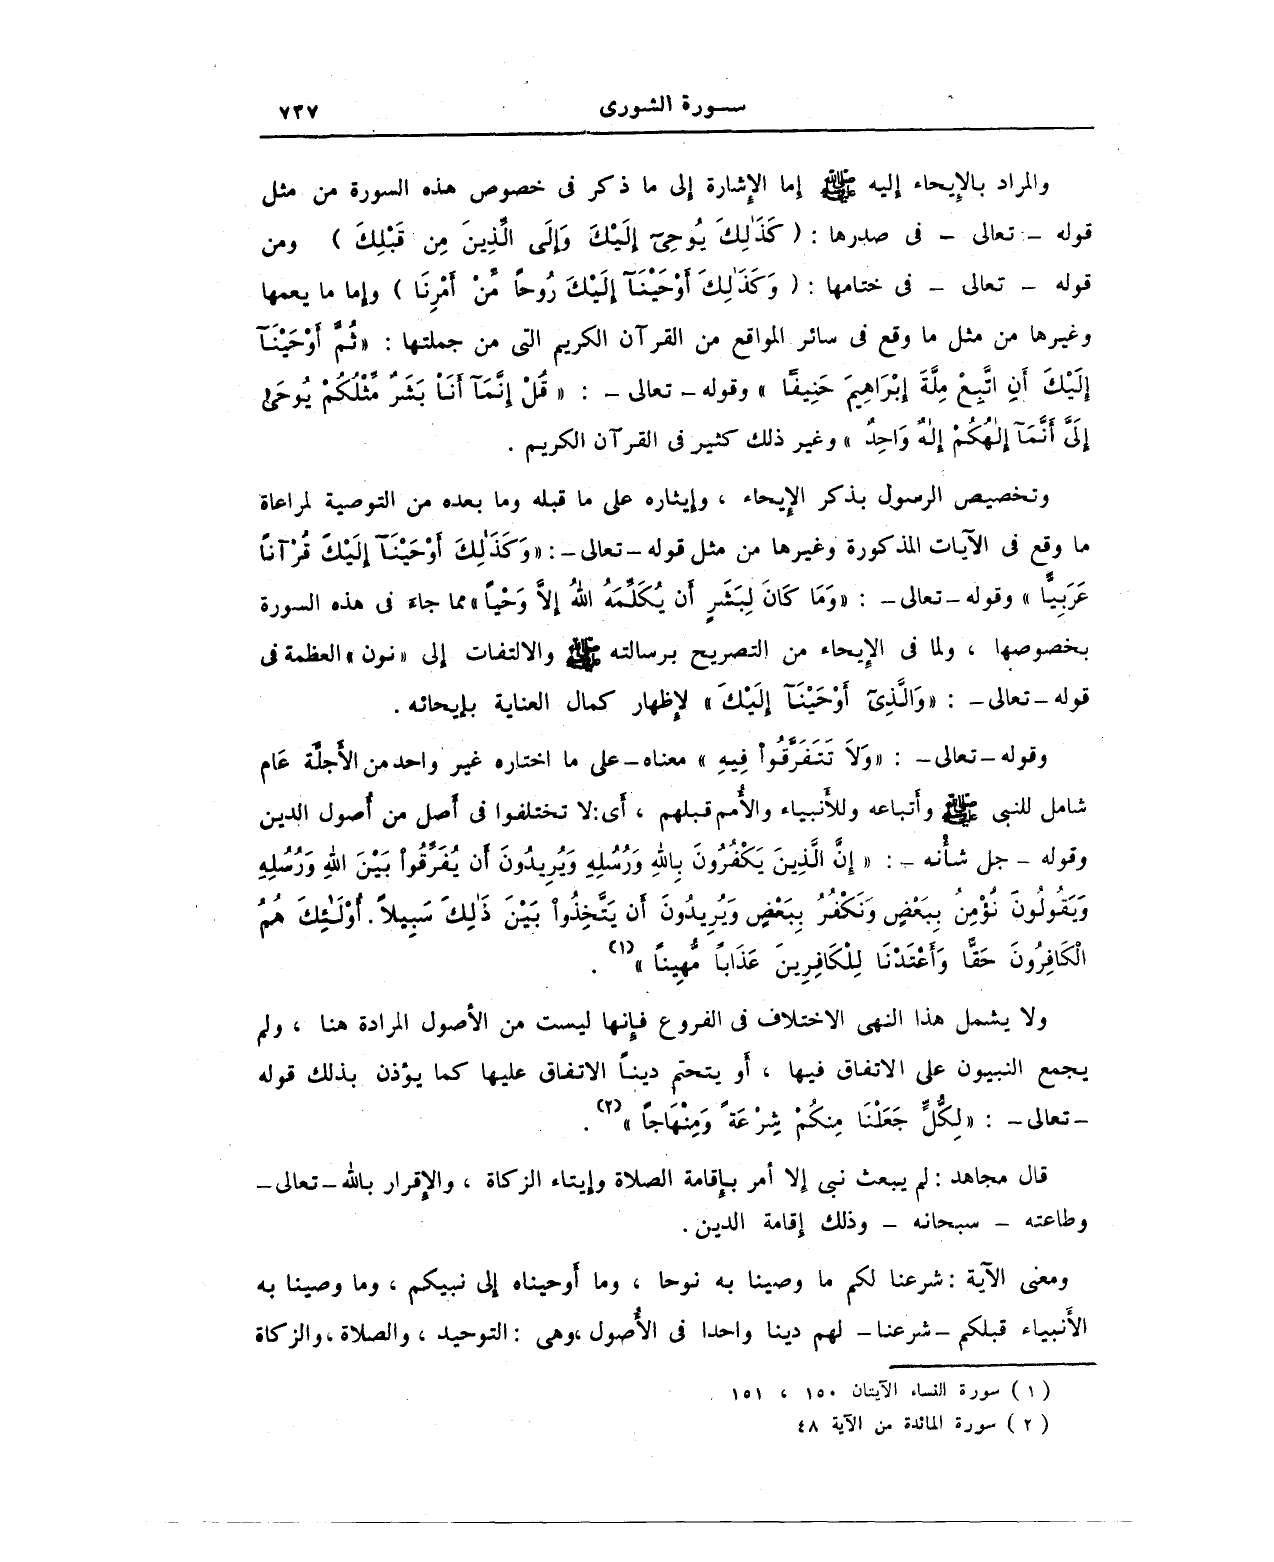 سورة الشورى
٧٣٧
والمراد بالإيحاء إليه ﷺ إما الإشارة إلى ما ذكر فى خصوص هذه السورة من مثل
قوله - تعالى - فى صدرها : ( كَذَٰلِكَ يُوحِىٓ إِلَيْكَ وَإِلَى الَّذِينَ مِن قَبْلِكَ ) ومن
قوله - تعالى - فى ختامها : ( وَكَذَٰلِكَ أَوْحَيْنَآ إِلَيْكَ رُوحاً مِّنْ أَمْرِنَا ) وإما ما يعمها
وغيرها من مثل ما وقع فى سائر المواقع من القرآن الكريم التى من جملتها : «ثُمَّ أَوْحَيْنَآ
إِلَيْكَ أَنِ اتَّبِعْ مِلَّةَ إِبْرَاهِيمَ حَنِيفًا » وقوله - تعالى - : « قُلْ إِنَّمَآ أَنَاْ بَشَرٌ مِّثْلُكُمْ يُوحَىٰ
إِلَىَّ أَنَّمَآ إِلَٰهُكُمْ إِلَٰهٌ وَاحِدٌ » وغير ذلك كثير فى القرآن الكريم .
وتخصيص الرسول بذكر الإيحاء ، وإيثاره على ما قبله وما بعده من التوصية لمراعاة
ما وقع فى الآيات المذكورة وغيرها من مثل قوله - تعالى - : «وَكَذَٰلِكَ أَوْحَيْنَآ إِلَيْكَ قُرْآناً
عَرَبِيًّا » وقوله - تعالى - : «وَمَا كَانَ لِبَشَرٍ أَن يُكَلِّمَهُ اللهُ إِلاَّ وَحْياً» مما جاء فى هذه السورة
بخصوصها ، ولما فى الإيحاء من التصريح برسالته ﷺ والالتفات إلى «نون» العظمة فى
قوله - تعالى - : «وَالَّذِىٓ أَوْحَيْنَآ إِلَيْكَ» لإظهار كمال العناية بإيحائه .
وقوله - تعالى - : «وَلاَ تَتَفَرَّقُواْ فِيهِ » معناه - على ما اختاره غير واحد من الأَجلَّة عَام
شامل للنبى ﷺ وأَتباعه وللأَنبياء والأُمم قبلهم ، أَى : لا تختلفوا فى أَصل من أُصول الدين
وقوله - جل شأْنه - : « إِنَّ الَّذِينَ يَكْفُرُونَ بِاللهِ وَرُسُلِهِ وَيُرِيدُونَ أَن يُفَرِّقُواْ بَيْنَ اللهِ وَرُسُلِهِ
وَيَقُولُونَ نُؤْمِنُ بِبَعْضٍ وَنَكْفُرُ بِبَعْضٍ وَيُرِيدُونَ أَن يَتَّخِذُواْ بَيْنَ ذَٰلِكَ سَبِيلاً. أُوْلَٰئِكَ هُمُ
الْكَافِرُونَ حَقًّا وَأَعْتَدْنَا لِلْكَافِرِينَ عَذَاباً مُّهِيناً »(١) .
ولا يشمل هذا النهى الاختلاف فى الفروع فإنها ليست من الأصول المرادة هنا ، ولم
يجمع النبيون على الاتفاق فيها ، أَو يتحتم ديناً الاتفاق عليها كما يؤذن بذلك قوله
- تعالى - : «لِكُلٍّ جَعَلْنَا مِنكُمْ شِرْعَةً وَمِنْهَاجاً »(٢) .
قال مجاهد : لم يبعث نبى إلا أمر بإقامة الصلاة وإيتاء الزكاة ، والإقرار بالله - تعالى -
وطاعته - سبحانه - وذلك إقامة الدين .
ومعنى الآية : شرعنا لكم ما وصينا به نوحا ، وما أَوحيناه إلى نبيكم ، وما وصينا به
الأَنبياء قبلكم - شرعنا - لهم دينا واحدا فى الأُصول ،وهى : التوحيد ، والصلاة ، والزكاة
( ١ ) سورة النساء الآيتان ١٥٠ ، ١٥١ .
( ٢ ) سورة المائدة من الآية ٤٨